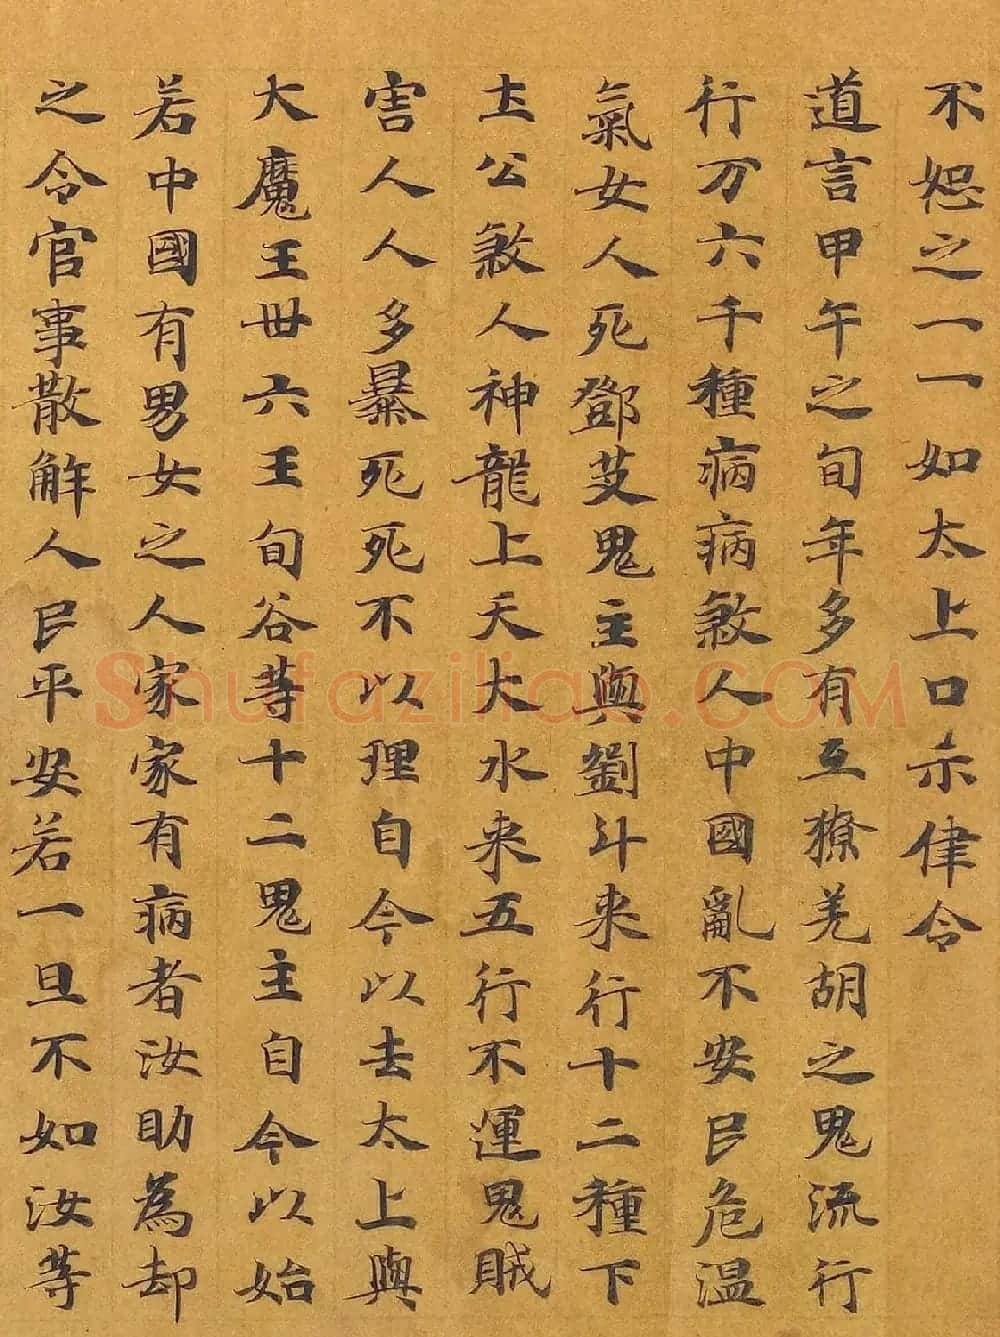 不恕之一一如太上口示律令
道言甲午之旬年多有互獠羌胡之鬼流行
行万六千種病病煞人中國亂不安民危温
氣女人死鄧艾鬼主與劉斗来行十二種下
圡公煞人神龍上天大水来五行不運鬼賊
害人人多暴死死不以理自今以去太上與
大魔王丗六王旬谷等十二鬼主自今以始
若中國有男女之人家家有病者汝助為却
之令官事散解人民平安若一旦不如汝等
Shufaziliao.COM